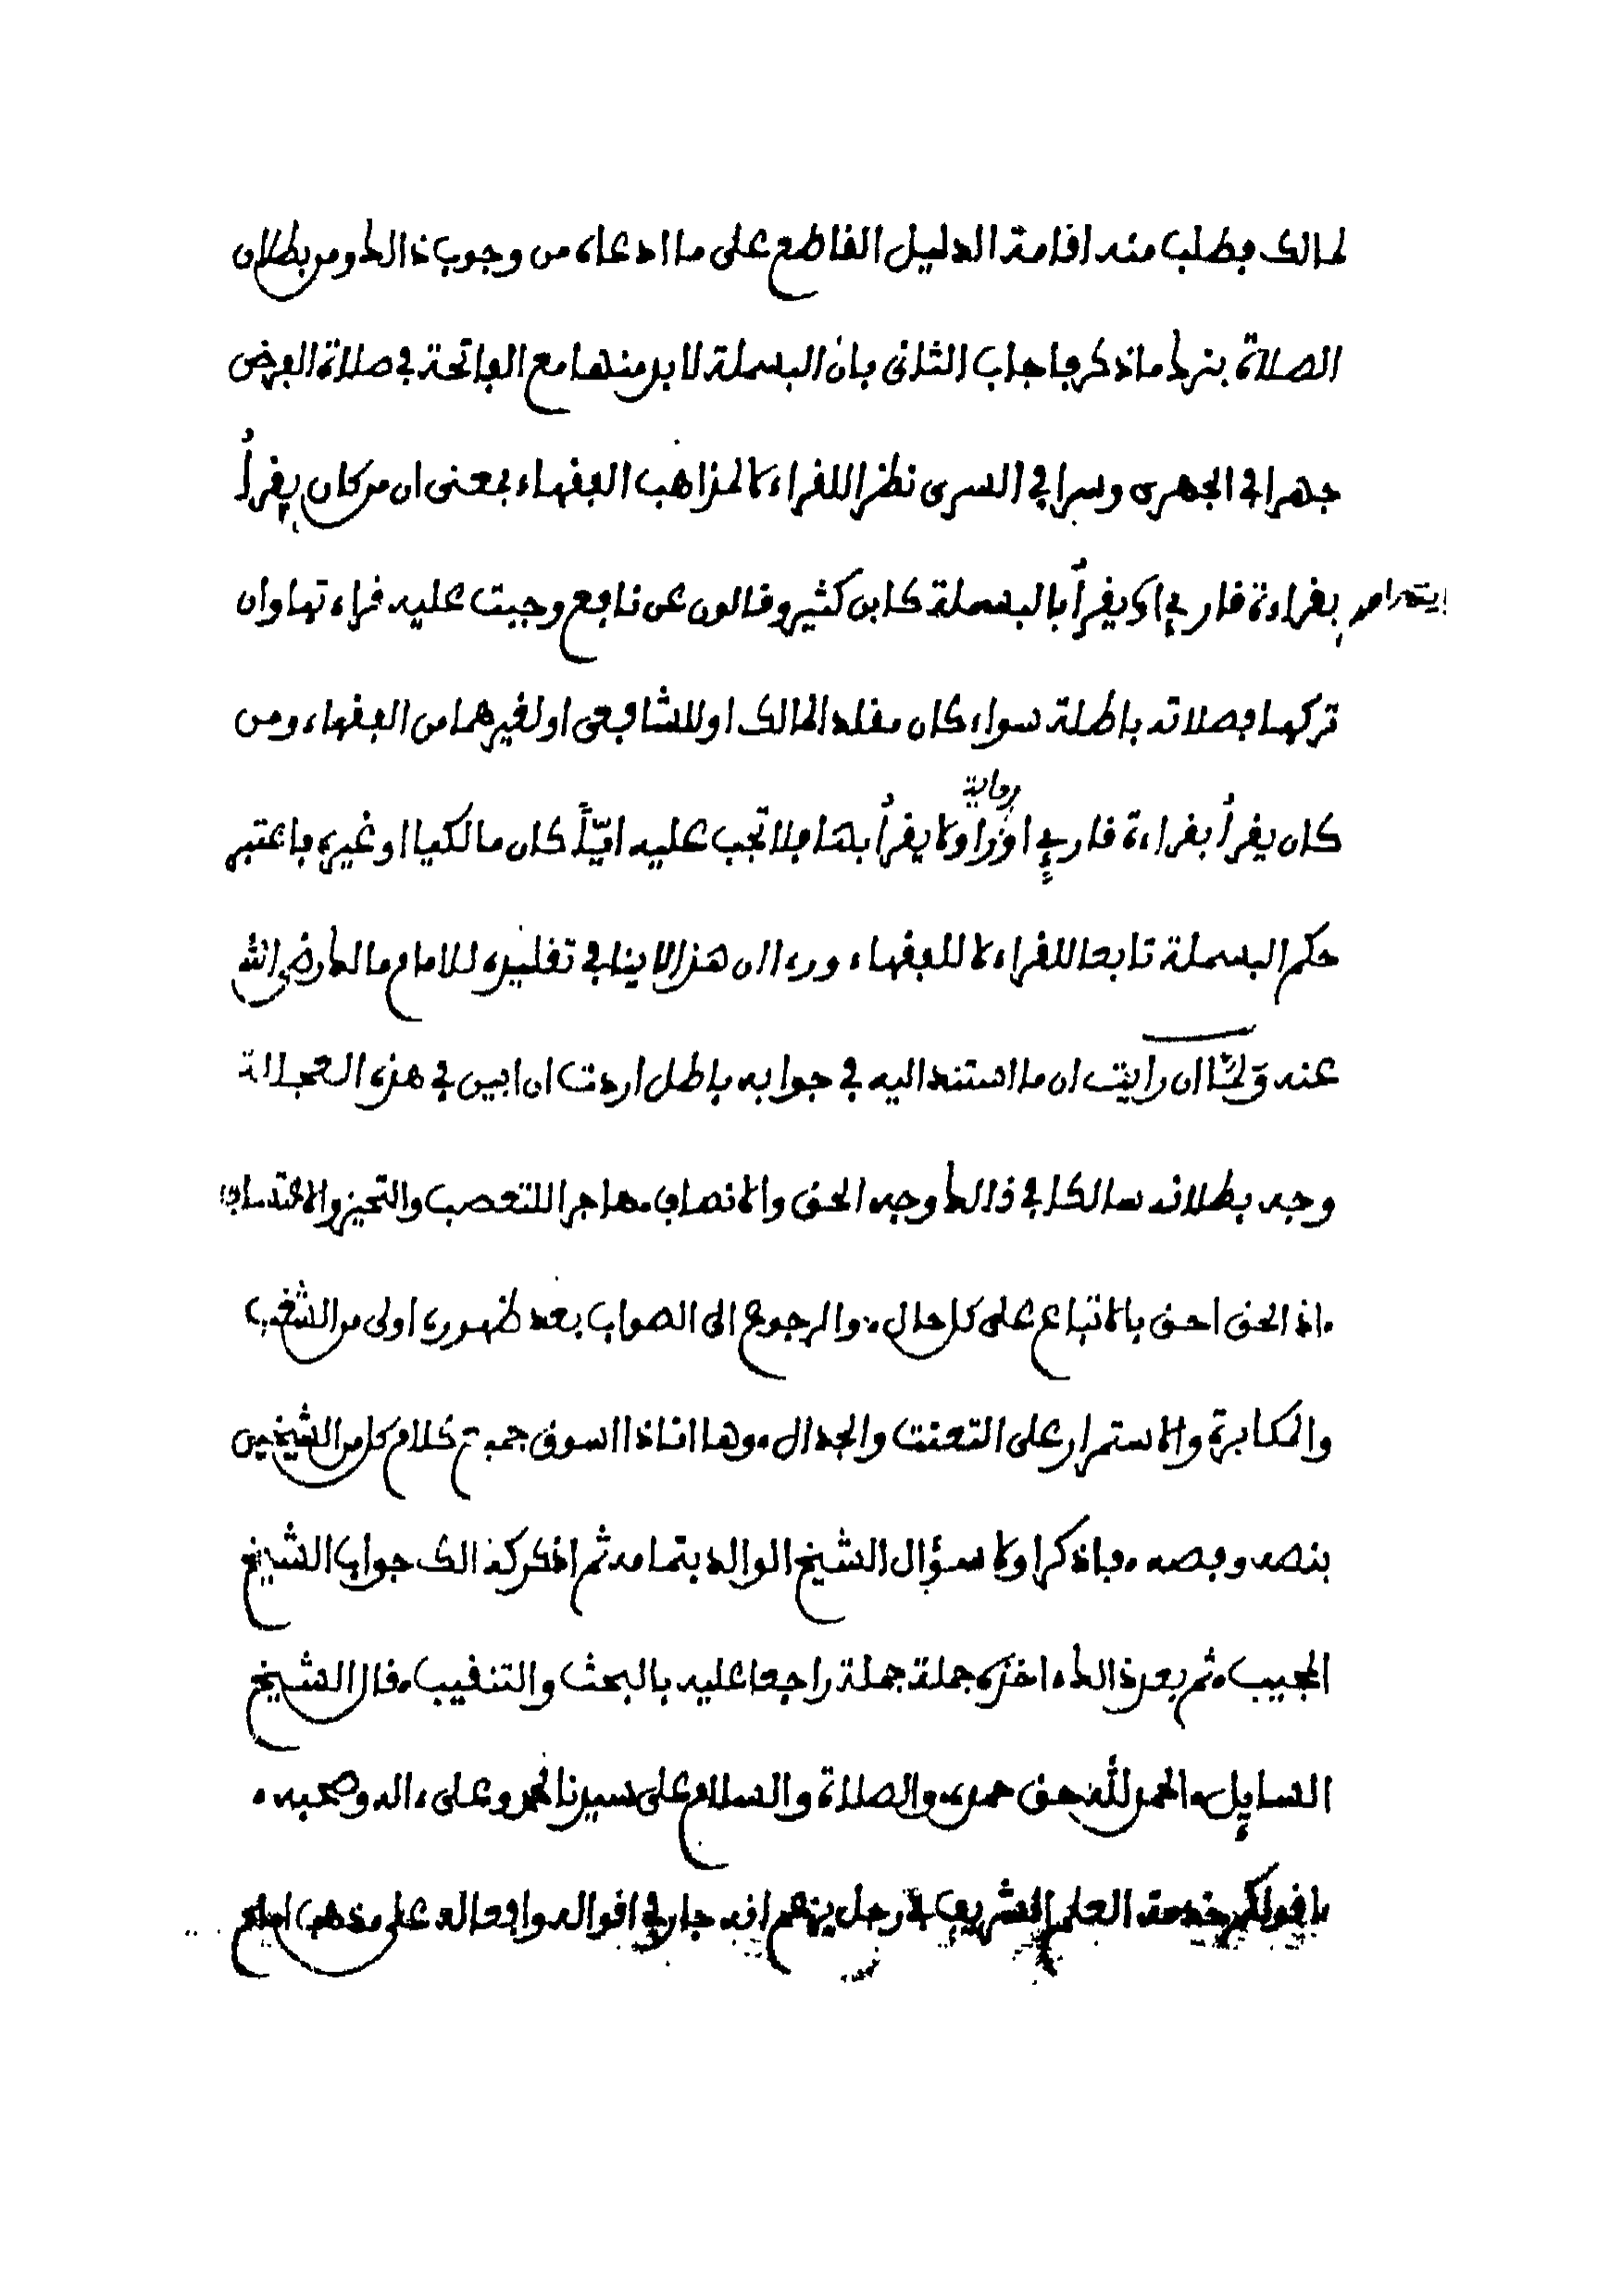 لمالك فطلب منه اقامة الدليل القاطع على ما ادعاه من وجوب ذالك ومن بطلان
الصلاة بترك ما ذكر فاجاب الثانى بان البسملة لا بد منها مع الفاتحة في صلاة الفرض
جهرا في الجهرى وسرا في السرى نظرا للقراء لا لمذاهب الفقهاء بمعنى ان من كان يقرأ
بقراءة قارئ يقرأ بالبسملة كابن كثير وقالون عن نافع وجبت عليه قراءتها وان
تركها فصلاته باطلة سواء كان مقلدا لمالك او للشافعى او لغيرهما من الفقهاء ومن
كان يقرأ بقراءة قارئ او رواية راو لا يقرأ بها فلا تجب عليه ايًّا كان مالكيا او غيره فاعتبر
حكم البسملة تابعا للقراء لا للفقهاء ورءا ان هذا لا ينافي تقليده للامام مالك رضي الله
عنه وَلمّا ان رايت ان ما استند اليه في جوابه باطل اردت ان ابين في هذه العجالة
وجه بطلانه سالكا في ذالك وجه الحق والانصاف مهاجرا للتعصب والتحيز والاعتساف
اذ الحق احق بالاتباع على كل حال والرجوع الى الصواب بعد ظهوره اولى من الشغب
والمكابرة والاستمرار على التعنت والجدال وها انا ذا اسوق جميع كلام كل من الشيخين
بنصه وفصه فاذكر اولا سؤال الشيخ الوالد بتمامه ثم اذكر كذالك جواب الشيخ
المجيب ثم بعد ذالك اخذه جملة جملة راجعا عليه بالبحث والتنقيب قال الشيخ
السايل الحمد لله حق حمده والصلاة والسلام على سيدنا محمد وعلى ءاله وصحبه
ما قولكم خدمة العلم الشريف في رجل يزعم انه جار في اقواله وافعاله على مذهب امام